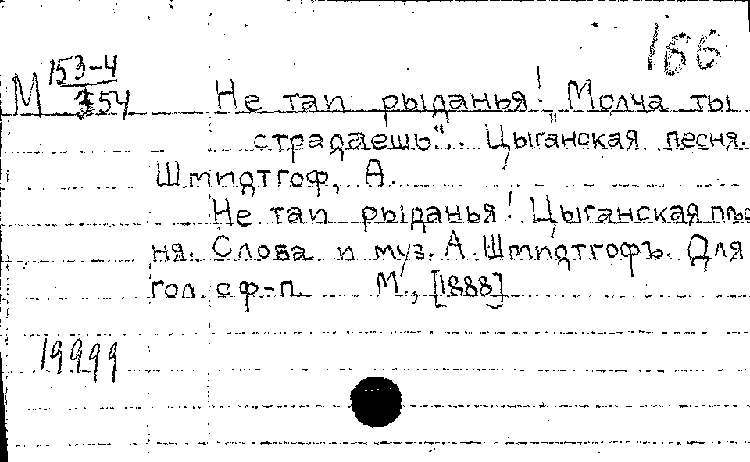 166
М 153-4
354
Не таи рыданья! "Молча ты
страдаешь". Цыганская песня.
Шмидтгоф, А.
Не таи рыданья! Цыганская пѣс
ня. Слова и муз. А. Шмидтгофъ. Для
гол. с ф-п. М., [1888]
19999